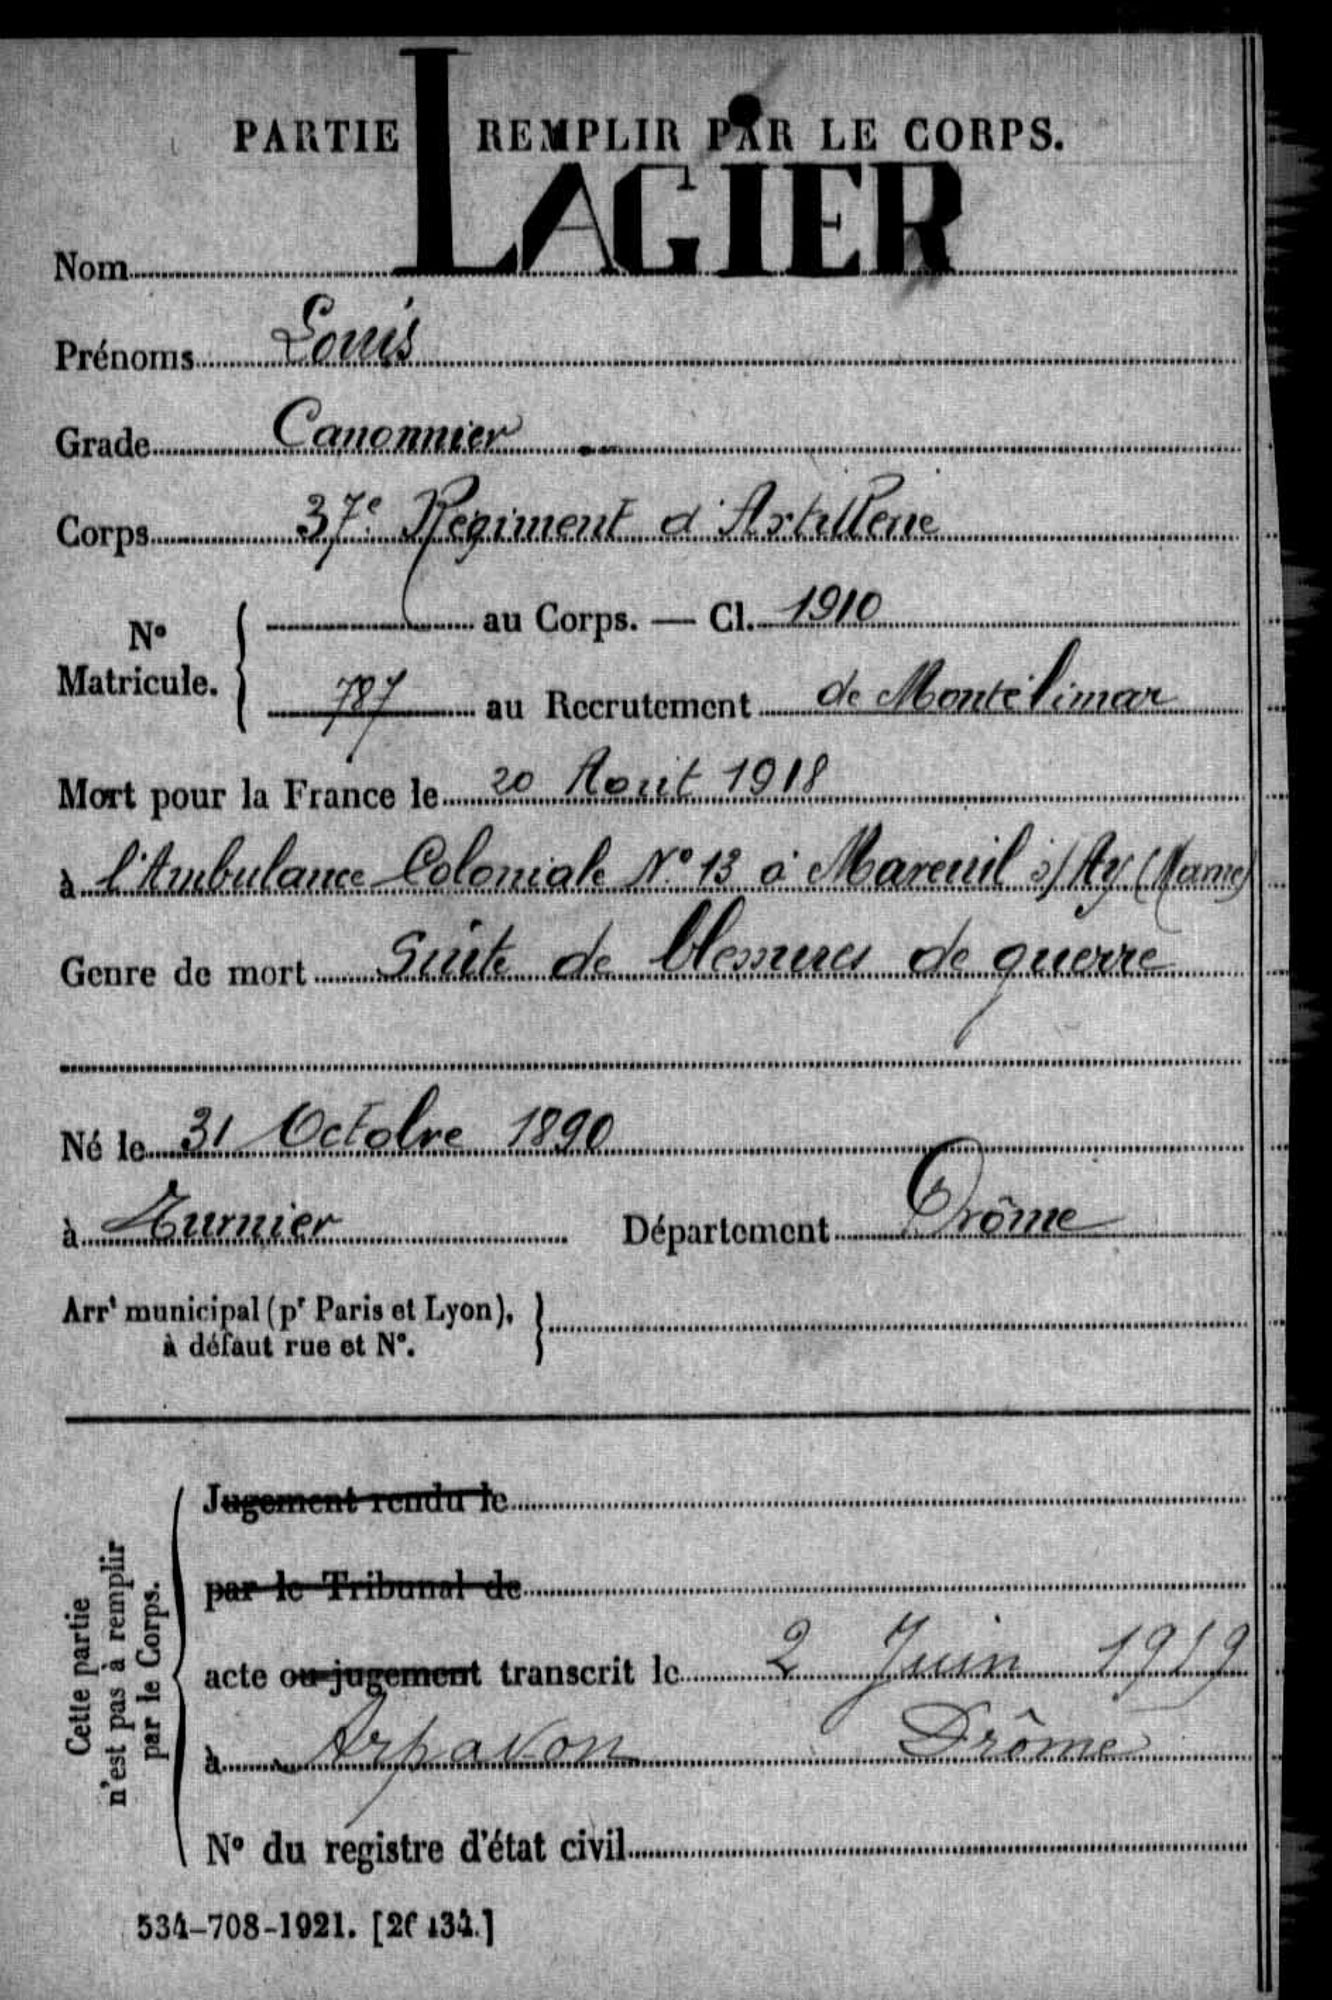 PARTIE REMPLIR PAR LE CORPS.
Nom LAGIER
Prénoms Louis
Grade Canonnier
Corps 37e Régiment d'Artillerie
N° Matricule. au Corps. — Cl. 1910
787 au Recrutement de Montélimar
Mort pour la France le 20 Août 1918
à l'Ambulance Coloniale N° 13 à Mareuil s/ Ay (Marne)
Genre de mort Suite de blessures de guerre
Né le 31 Octobre 1890
à Département Drôme
Arrt municipal (pr Paris et Lyon),
à défaut rue et N°.
Cette partie
n'est pas à remplir
par le Corps.
Jugement rendu le
par le Tribunal de
acte ou jugement transcrit le 2 Juin 1919
à Arpavon Drôme
N° du registre d'état civil
534-708-1921.